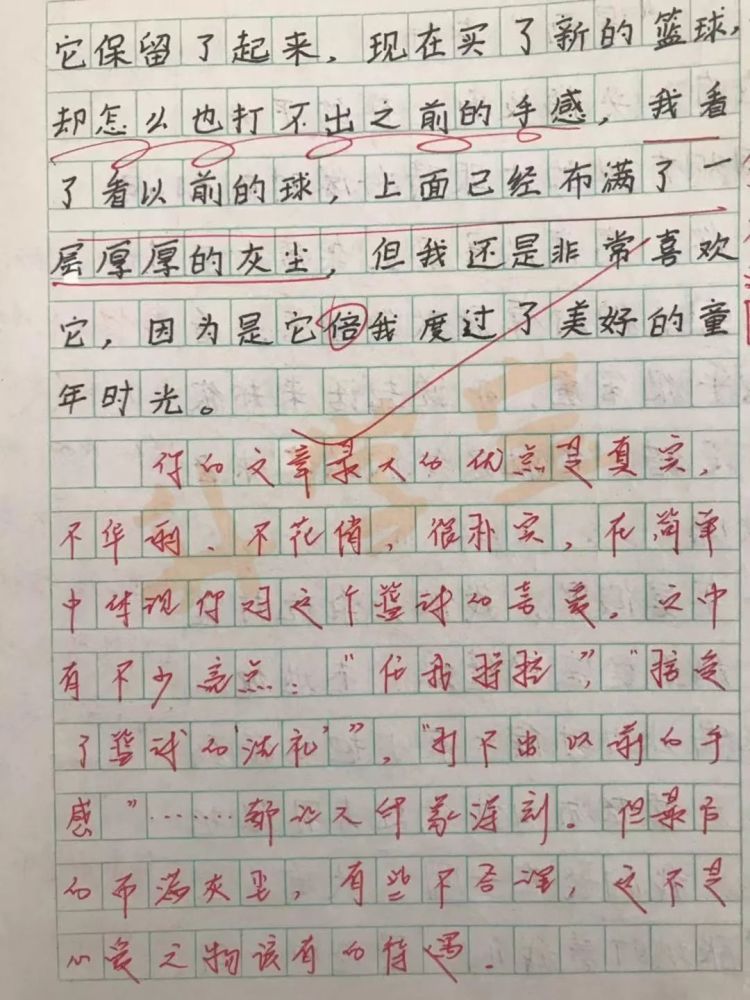 它保留了起来，现在买了新的篮球，
却怎么也打不出之前的手感，我看
了看以前的球，上面已经布满了一
层厚厚的灰尘，但我还是非常喜欢
它，因为是它倍我度过了美好的童
年时光。
你的文章最大的优点是真实，
不华丽、不花俏，很朴实，在简单
中体现你对这个篮球的喜爱。文中
有不少亮点："任我","接受
了篮球的'洗礼'"，"打不出以前的手
感"……都让人印象深刻。但最后
的布满灰尘，有些不合理，这不是
心爱之物该有的待遇。